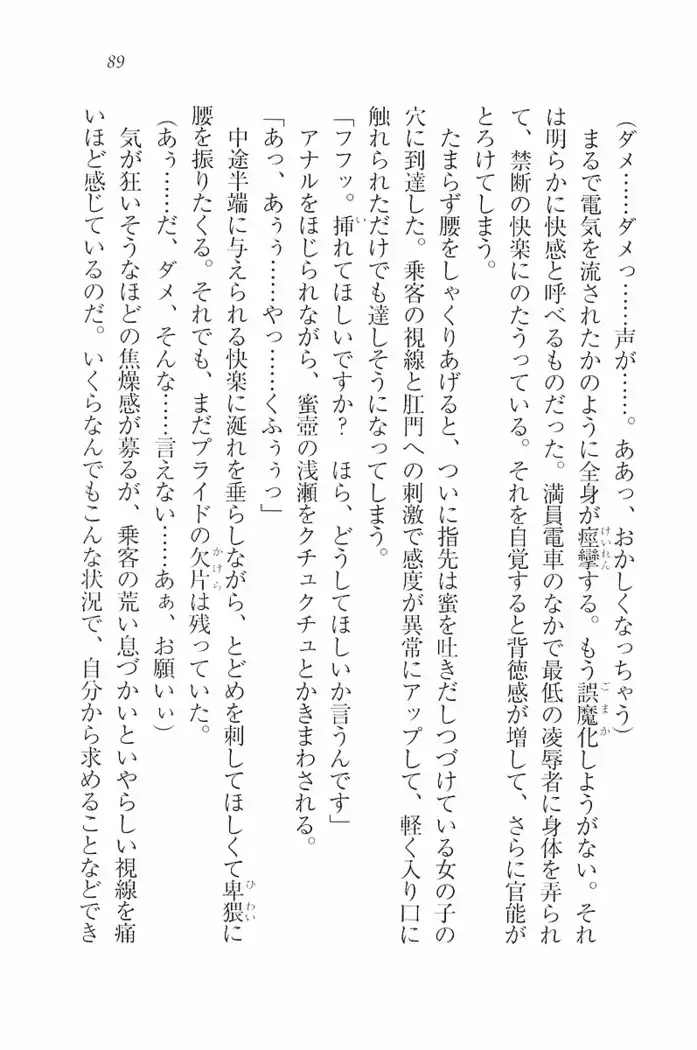 89
(ダメ……ダメっ……声が……。ああっ、おかしくなっちゃう)
まるで電気を流されたかのように全身が痙攣する。もう誤魔化しようがない。それ
は明らかに快感と呼べるものだった。満員電車のなかで最低の凌辱者に身体を弄られ
て、禁断の快楽にのたうっている。それを自覚すると背徳感が増して、さらに官能が
とろけてしまう。
たまらず腰をしゃくりあげると、ついに指先は蜜を吐きだしつづけている女の子の
穴に到達した。乗客の視線と肛門への刺激で感度が異常にアップして、軽く入り口に
触れられただけでも達しそうになってしまう。
「フフッ。挿れてほしいですか？　ほら、どうしてほしいか言うんです」
アナルをほじられながら、蜜壺の浅瀬をクチュクチュとかきまわされる。
「あっ、あぅぅ……やっ……くふぅぅっ」
中途半端に与えられる快楽に涎れを垂らしながら、とどめを刺してほしくて卑猥に
腰を振りたくる。それでも、まだプライドの欠片は残っていた。
(あぅ……だ、ダメ、そんな……言えない……あぁ、お願いぃ)
気が狂いそうなほどの焦燥感が募るが、乗客の荒い息づかいといやらしい視線を痛
いほど感じているのだ。いくらなんでもこんな状況で、自分から求めることなどでき